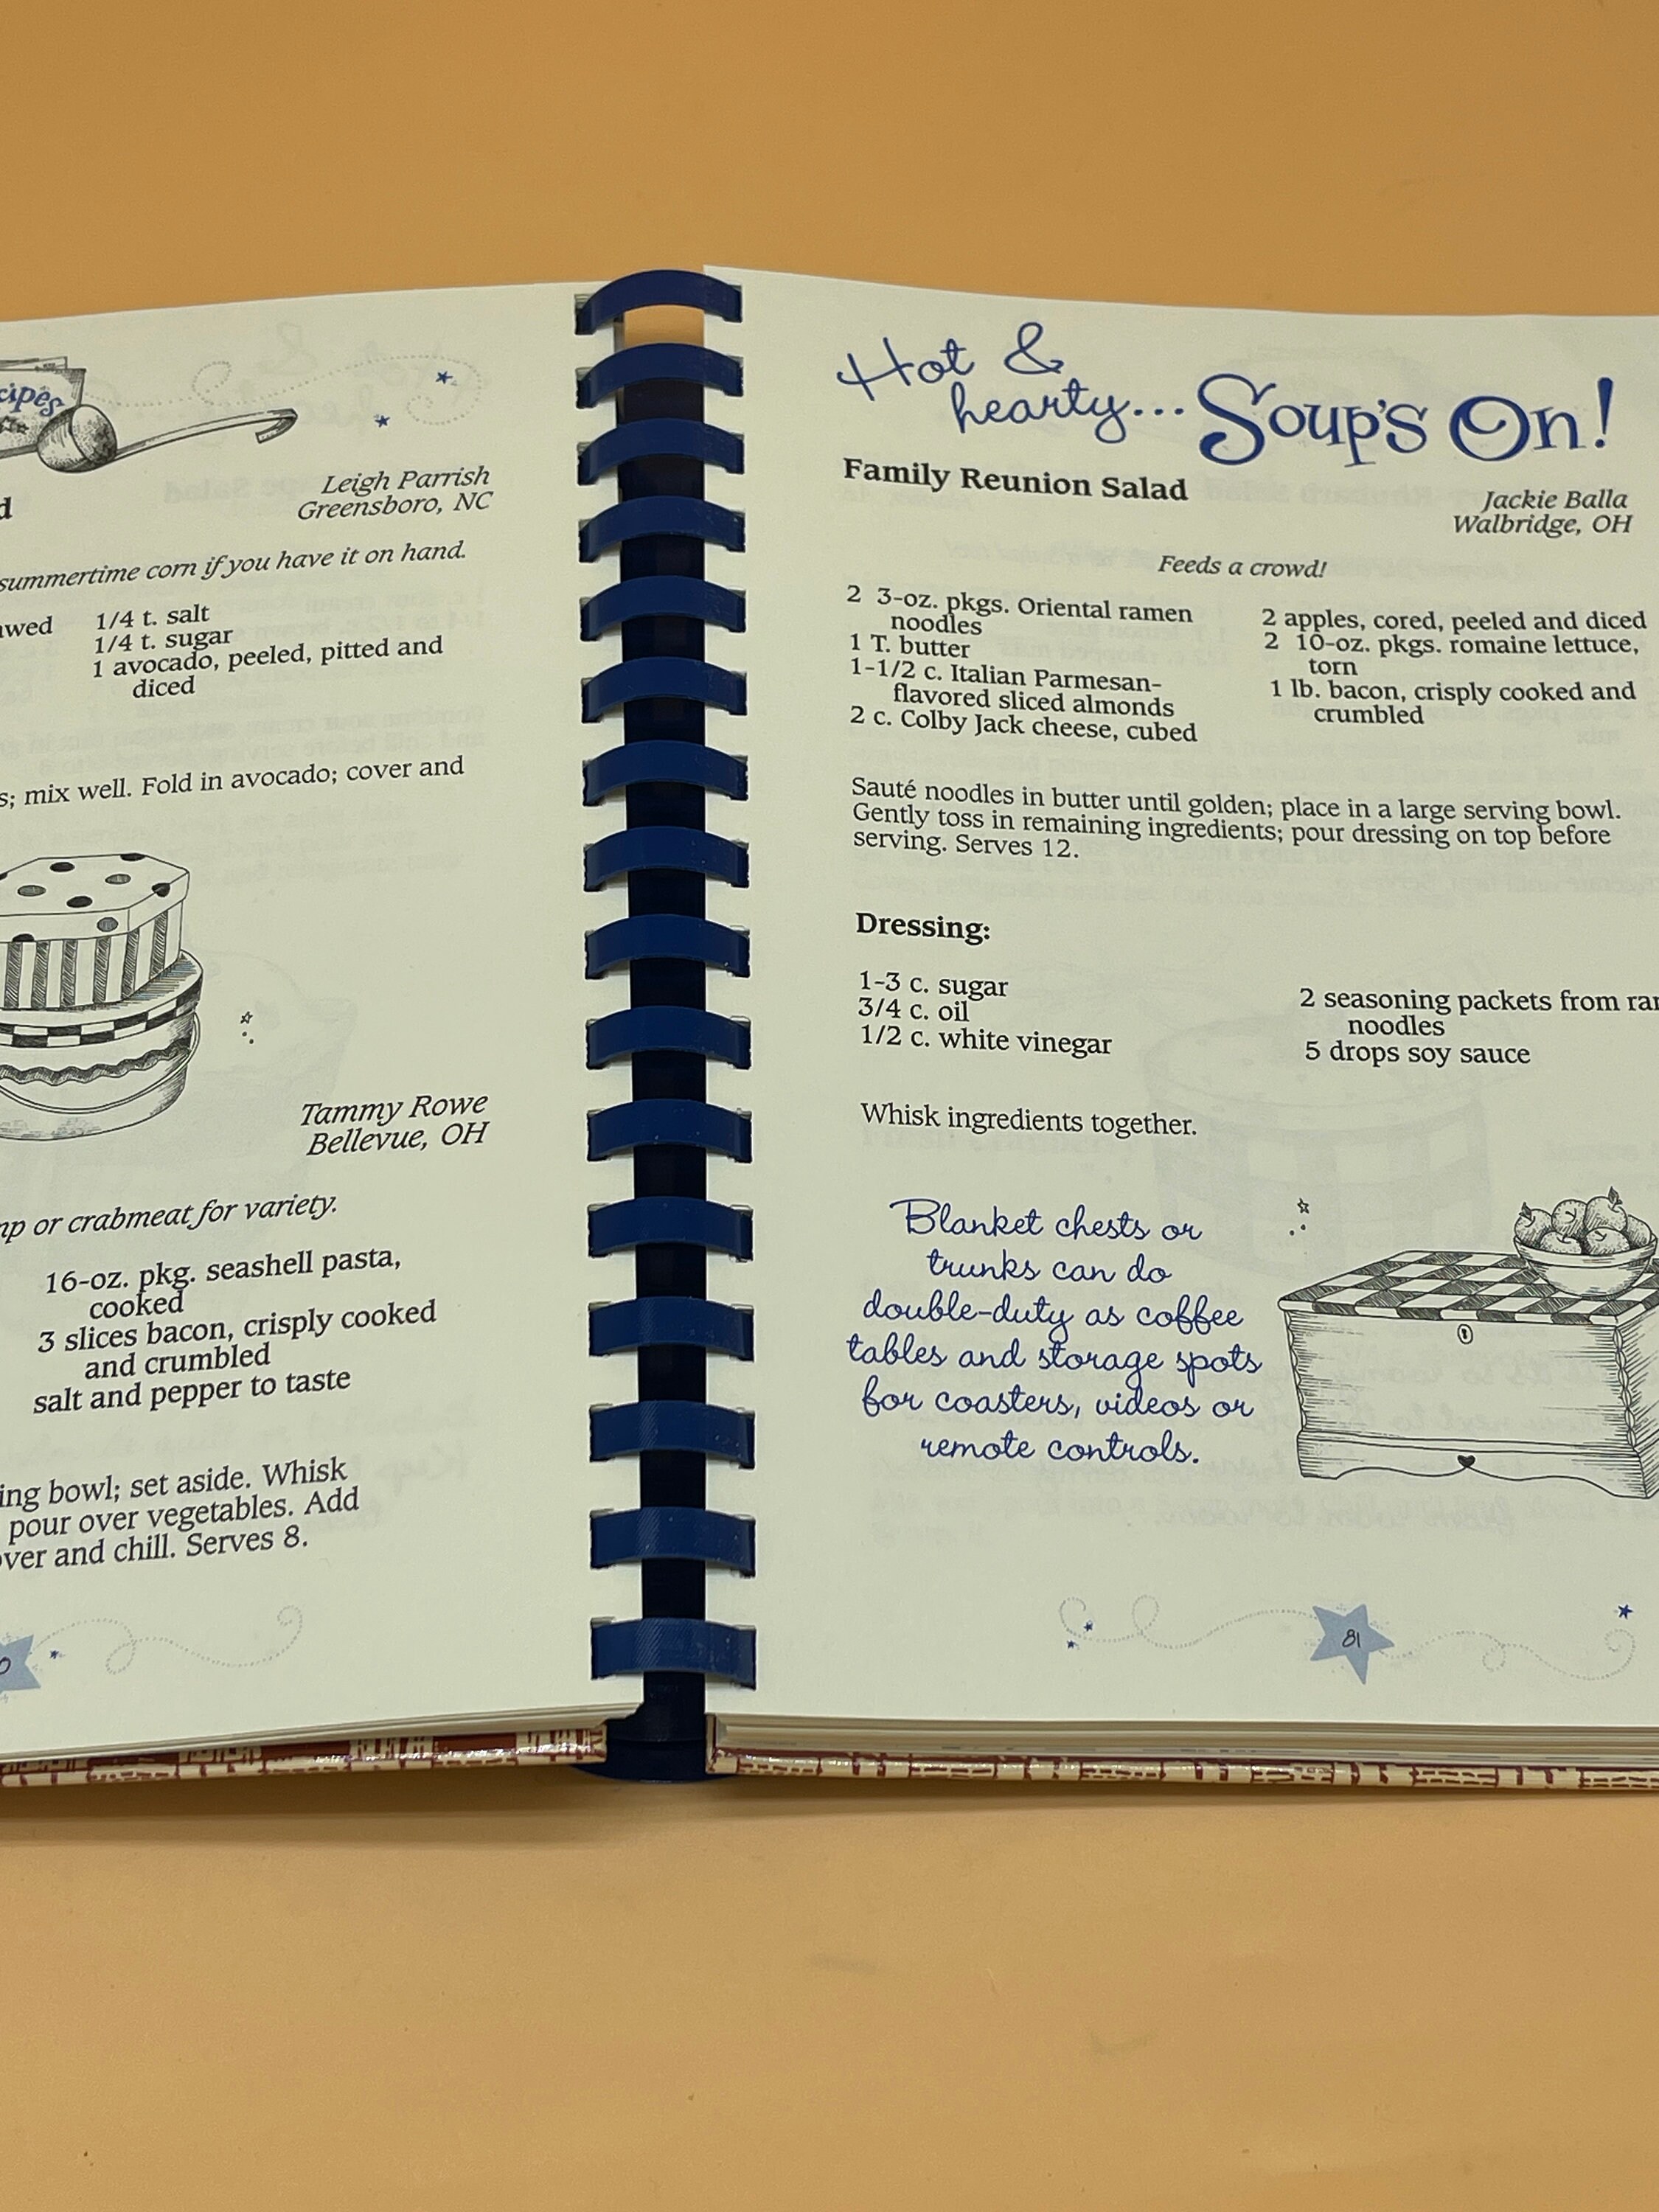 cipes
d
Leigh Parrish
Greensboro, NC
summertime corn if you have it on hand.
awed
1/4 t. salt
1/4 t. sugar
1 avocado, peeled, pitted and
diced
s; mix well. Fold in avocado; cover and
Tammy Rowe
Bellevue, OH
mp or crabmeat for variety.
16-oz. pkg. seashell pasta,
cooked
3 slices bacon, crisply cooked
and crumbled
salt and pepper to taste
ing bowl; set aside. Whisk
pour over vegetables. Add
over and chill. Serves 8.
0
Hot &
hearty... Soup's On!
Family Reunion Salad
Jackie Balla
Walbridge, OH
Feeds a crowd!
2 3-oz. pkgs. Oriental ramen
noodles
1 T. butter
1-1/2 c. Italian Parmesan-
flavored sliced almonds
2 c. Colby Jack cheese, cubed
2 apples, cored, peeled and diced
2 10-oz. pkgs. romaine lettuce,
torn
1 lb. bacon, crisply cooked and
crumbled
Sauté noodles in butter until golden; place in a large serving bowl.
Gently toss in remaining ingredients; pour dressing on top before
serving. Serves 12.
Dressing:
1-3 c. sugar
3/4 c. oil
1/2 c. white vinegar
2 seasoning packets from ra
noodles
5 drops soy sauce
Whisk ingredients together.
Blanket chests or
trunks can do
double-duty as coffee
tables and storage spots
for coasters, videos or
remote controls.
81